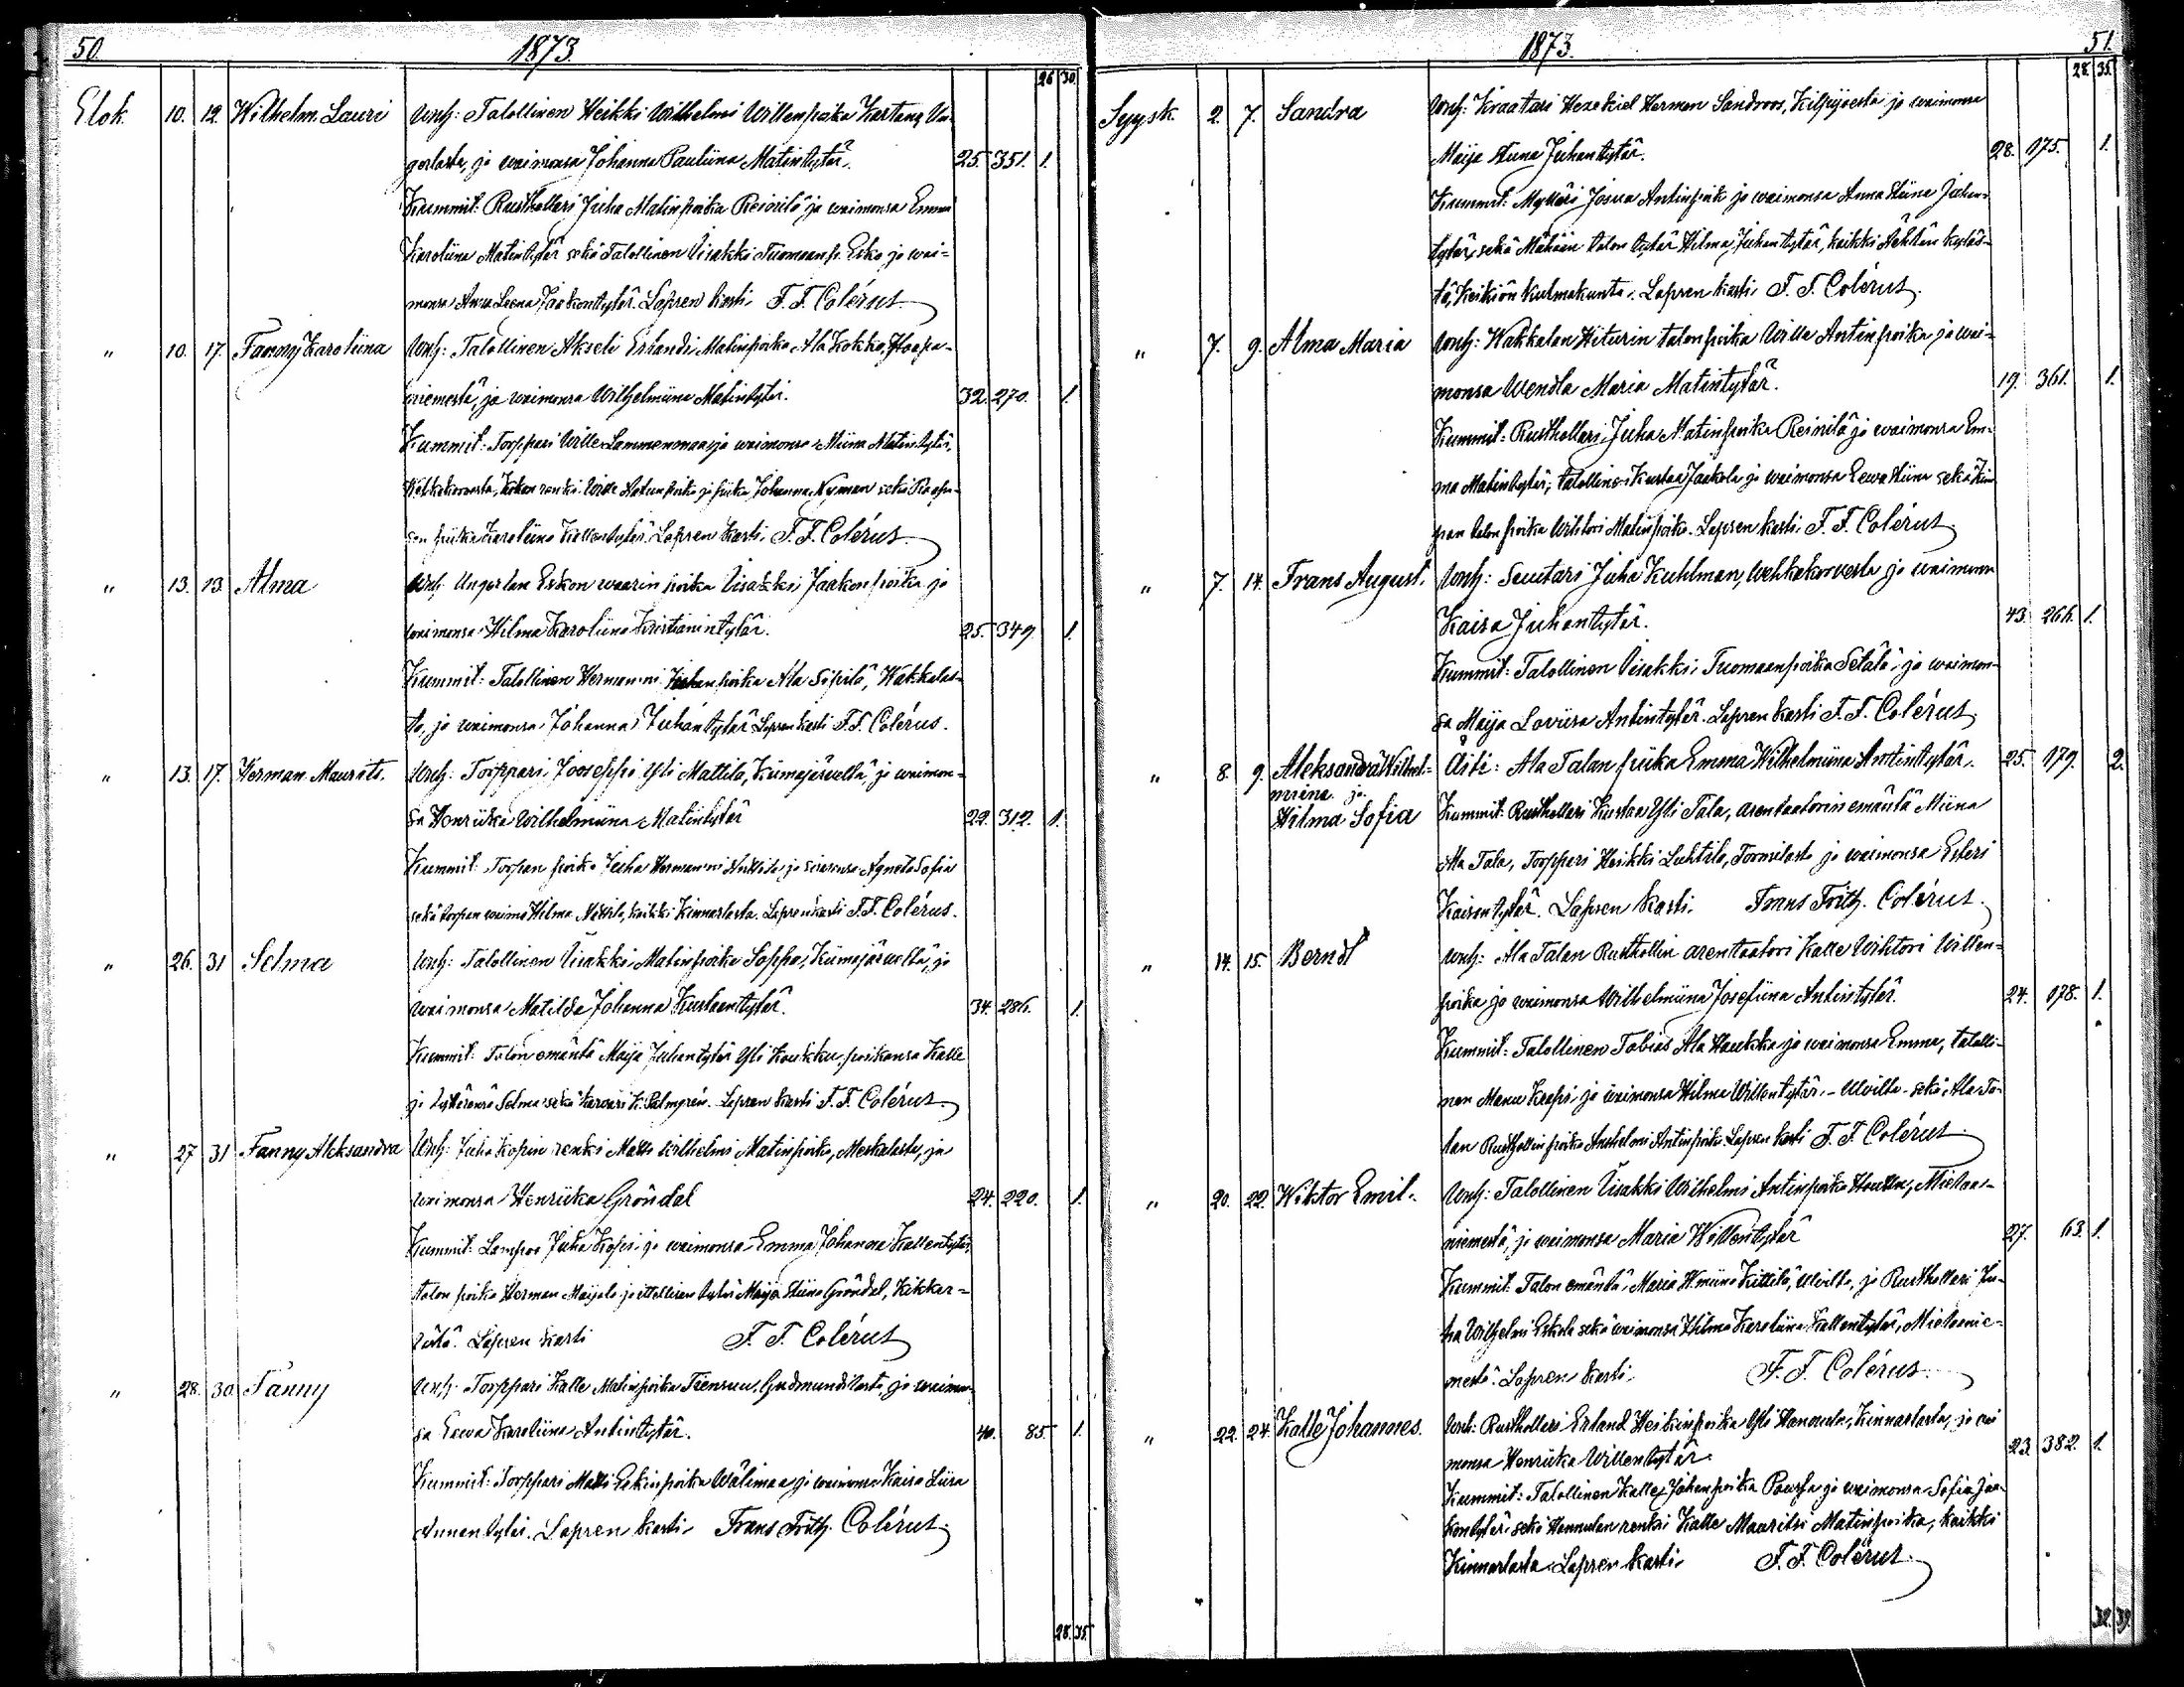 50. 1873.
26 30.
Elok. 10. 12. Wilhelm Lauri Wnh: Talollinen Heikki Wilhelmi Willenpoika Kartano, Un-
gorlasta, ja waimonsa Johanna Pauliina Matintytär. 25. 351. 1.
Kummit: Rusthollari Juha Matinpoika Reinilä ja waimonsa Emma
Karoliina Matintytär sekä Talollinen Iisakki Tuomaanp. Esko ja wai-
monsa Anna Leena Jaakontytär. Lapsen kasti F. F. Colérus.
" 10. 17. Fanny Karoliina Wnh: Talollinen Akseli Erlandi Matinpoika Ala Kokko, Haapa-
niemestä, ja waimonsa Wilhelmiina Matintytär. 32. 270. 1.
Kummit: Torppari Wille Lammenmaa ja waimonsa Miina Matintytär,
renki Wille ja piika Johanna Nyman sekä
piika Karoliina Kallentytär. Lapsen kasti F. F. Colérus.
" 13. 13. Alma Wnh: Ungorlan Eskon waarin poika Iisakki Jaakonpoika ja
waimonsa Hilma Karoliina Kristianintytär. 25. 349. 1.
Kummit: Talollinen Hermanni poika Ala Sipilä, Wakkalas-
ta, ja waimonsa Johanna Juhantytär Lapsen kasti F. F. Colérus.
" 13. 17. Herman Maurits. Wnh: Torppari Jooseppi Yli Mattila, Kiimajärveltä, ja waimon-
sa Henriika Wilhelmiina Matintytär 22. 312. 1.
Kummit: Torpan poika Juha Hermanni Anttila ja sisarensa Agneta Sofia
sekä torpan waimo Hilma Mattila, kaikki Kinnarlasta. Lapsen kasti F. F. Colérus.
" 26. 31 Selma Wnh: Talollinen Iisakki Matinpoika Soppo, Kiimajärveltä, ja
waimonsa Matilda Johanna Kustaantytär. 34. 286. 1.
Kummit: Talon emäntä Maija Juhantytär Yli Houkku, poikansa Kalle
ja tyttärensä Selma sekä karvari K. Palmgrén. Lapsen kasti F. F. Colérus.
" 27 31 Fanny Aleksandra Wnh: Juha Kopin renki Matti Wilhelmi Matinpoika, Meskalasta, ja
waimonsa Henriika Gröndal 24. 220. 1.
Kummit: Lampos Juha Kopi ja waimonsa Emma Johanna Kallentytär,
talon poika Herman Maijala ja itsellisen tytär Maija Stiina Gröndal, Kikker-
lästä. Lapsen kasti F. F. Colérus
" 28. 30 Fanny Wnh: Torppari Kalle Matinpoika Tiensuu, Gudmundilasta, ja waimon-
sa Eewa Karoliina Antintytär. 40. 85. 1.
Kummit: Torppari Matti Eskinpoika Wälimaa ja waimonsa Kaisa Liisa
Annantytär. Lapsen kasti Frans Frith. Colérus.
28. 35.
1873. 51.
28. 35.
Syysk. 2. 7. Sandra Wnh: Kraatari Hezekiel Herman Sandroos, Kilpijoesta ja waimonsa
Maija Anna Juhantytär. 28. 175. 1.
Kummit: Mylläri Josua Antinpoik ja waimonsa Anna Stiina Juhan-
tytär, sekä Mäkiän talon tytär Hilma Juhantytär, kaikki kyläs-
tä, Keikiön kulmakunta. Lapsen kasti F. F. Colérus.
" 7. 9. Alma Maria Wnh: Wakkalan Hiturin talonpoika Wille Antinpoika ja wai-
monsa Wendla Maria Matintytär. 19. 361. 1.
Kummit: Rusthollari Juha Matinpoika Reinilä ja waimonsa Em-
ma Matintytär; talollinen Kustaa Jaakola ja waimonsa Eewa Stiina sekä
pan talon poika Wihtori Matinpoika. Lapsen kasti F. F. Colérus.
" 7. 14. Frans August. Wnh: Suutari Juha Kuhlman, Wehkakorvesta ja waimonsa
Kaisa Juhantytär. 43. 266. 1.
Kummit: Talollinen Iisakki Tuomaanpoika Setälä ja waimon-
sa Maija Loviisa Antintytär. Lapsen kasti F. F. Colérus.
" 8. 9. Aleksandra Wilhel- Äiti: Ala Talan piika Emma Wilhelmiina Antintytär. 25. 179. 2.
miina ja
Hilma Sofia Kummit: Rusthollari Kustaa Yli Tala, arentaatorin emäntä Miina
Ala Tala, Torppari Heikki Luhtila, Tormilasta ja waimonsa Esteri
Kaisantytär. Lapsen kasti. Frans Frith. Colérus.
" 14. 15. Berndt Wnh: Ala Talan Rusthollin arentaatori Kalle Wihtori Willen-
poika ja waimonsa Wilhelmiina Josefiina Antintytär. 24. 178. 1.
Kummit: Talollinen Tobias Ala Haukka ja waimonsa Emma, talolli-
nen Manu Kaapi ja waimonsa Hilma Willentytär, - Ulvilta - sekä Ala Ta-
lan Rusthollin poika Anshelmi Antinpoika Lapsen kasti F. F. Colérus.
" 20. 22. Wiktor Emil. Wnh: Talollinen Iisakki Wilhelmi Antinpoika Miehois-
niemestä, ja waimonsa Maria Willentytär 27. 63. 1.
Kummit: Talon emäntä Maria Kittilä, Ulvilta, ja Rusthollari Ju-
ha Wilhelmi Eskola sekä waimonsa Hilma Karoliina Kallentytär, Miehoinie-
mestä. Lapsen kasti. F. F. Colérus.
" 22. 24. Kalle Johannes. Wnh: Rusthollari Erland Heikinpoika Yli Hannula, Kinnarlasta, ja wai
monsa Henriika Willentytär. 23. 382. 1.
Kummit: Talollinen Kalle Johanpoika Paursa ja waimonsa Sofia Jaa-
kontytär sekä Hannulan renki Kalle Mauritsi Matinpoika, kaikki
Kinnarlasta. Lapsen kasti. F. F. Colérus.
32. 39.